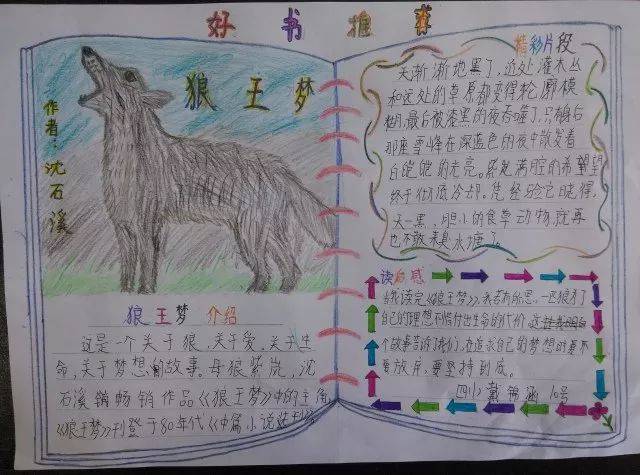 好书推荐
狼王梦
作者：沈石溪
狼王梦 介绍
这是一个关于狼,关于爱,关于生
命,关于梦想的故事。母狼紫岚,沈
石溪 畅销作品《狼王梦》中的主角
《狼王梦》刊登于80年代《中篇小说选刊
精彩片段
天渐渐地黑了,近处灌木丛
和远处的草原都变得轮廓模
糊,最后被漆黑的夜吞噬了,只有身后
那座雪峰在深蓝色的夜中散发着
白皑皑的光亮。紫岚满腔的希望
终于做低冷却。凭经验它晓得,
天一黑,胆小的食草动物就再
也不敢来臭水塘了。
读后感
当我读完《狼王梦》,我若有所思,一匹狼为了
自己的理想不惜付出生命的代价,这
个故事告诉了我们,在追求自己的梦想时要不
放弃,要坚持到底。
四(1) 戴锦涵 10号